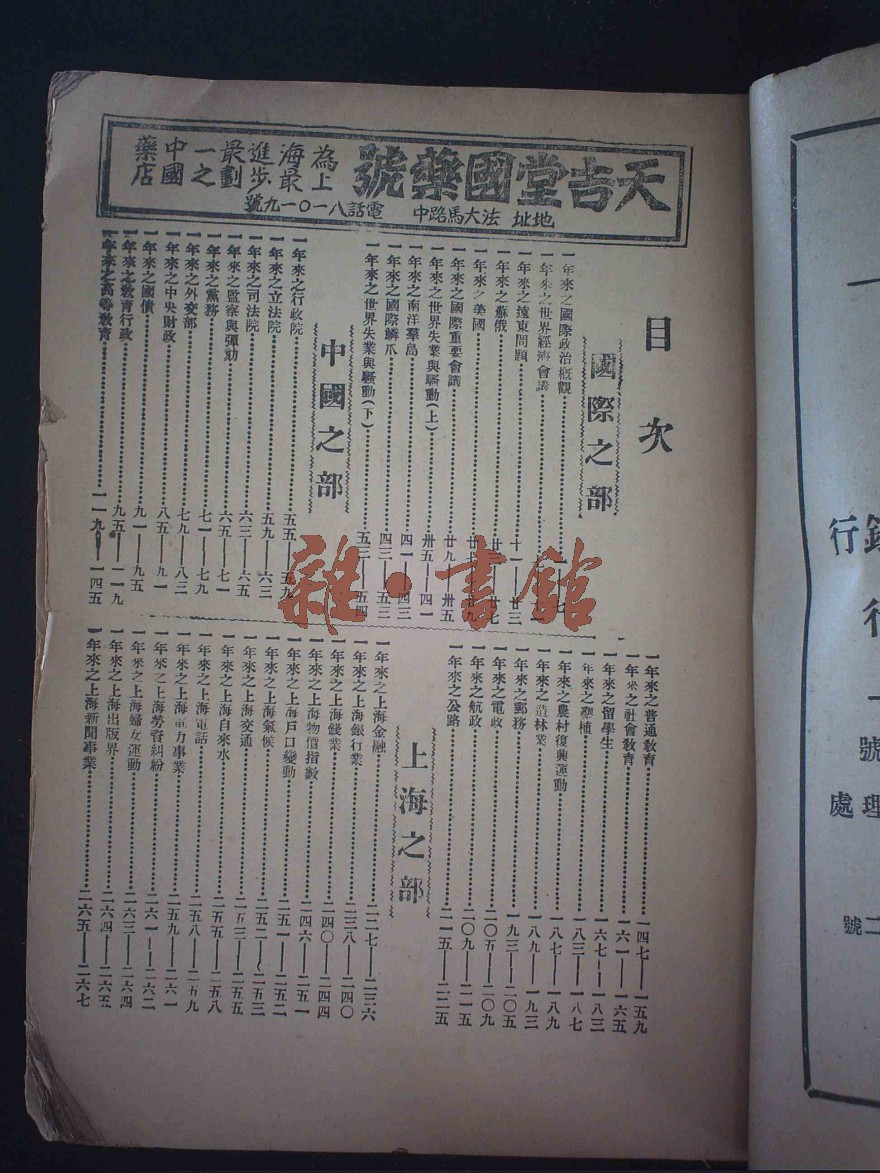 天吉堂國藥號
為上
海最
進步
最劃
一之
中國
藥店
地址 法大馬路中 電話八一〇一九號
目次
國際之部
一年來之國際政治概觀
一年來之世界經濟會議
一年來之遠東問題 十一——廿三
一年來之蘇俄
一年來之美國
一年來之國際重要會議 廿九——卅五
一年來之世界失業與騷動(上) 卅五——四一
一年來之南洋羣島 四一——四三
一年來之國際鱗爪 四三——五三
一年來之世界失業與騷動(下) 五三——五四
中國之部
一年來之行政院 五五——五九
一年來之立法院 五九——六三
一年來之司法院 六三——六五
一年來之監察與彈劾 六五——七一
一年來之黨務 七一——七九
一年來之外交部 七九——八三
一年來之中央財政 八五——九一
一年來之國債 九一——九五
一年來之教育行政 九五——一一九
一年來之高等教育 一一九——一四五
一年來之普通敎育 一四七——一五九
一年來之社會敎育 一六一——一六五
一年來之留學生 一六七——一八三
一年來之墾植 一八三——一八七
一年來之農村復興運動 一八七——一八九
一年來之造林業 一八九——一九三
一年來之郵務 一九三——二〇五
一年來之電政 二〇五——二〇九
一年來之航政 二〇九——二一五
一年來之公路 二一五——二二五
上海之部
一年來之上海金融 二二七——二三六
一年來之上海銀行業 二三八——二四〇
一年來之上海錢業 二四〇——二四四
一年來之上海物價指數 二四六——二五一
一年來之上海戶口變動 二五一——二五二
一年來之上海氣候 二五二——二五三
一年來之上海交通 二五三——二五五
一年來之上海自來水 二五五——二五八
一年來之上海電話 二五八——二五九
一年來之上海電力事業 二五九——二六一
一年來之上海勞資糾紛 二六一——二六二
一年來之上海婦女運動 二六三——二六四
一年來之上海出版界 二六四——二六五
一年來之上海新聞事業 二六五——二六七
雜·書館
行
號
理處
號